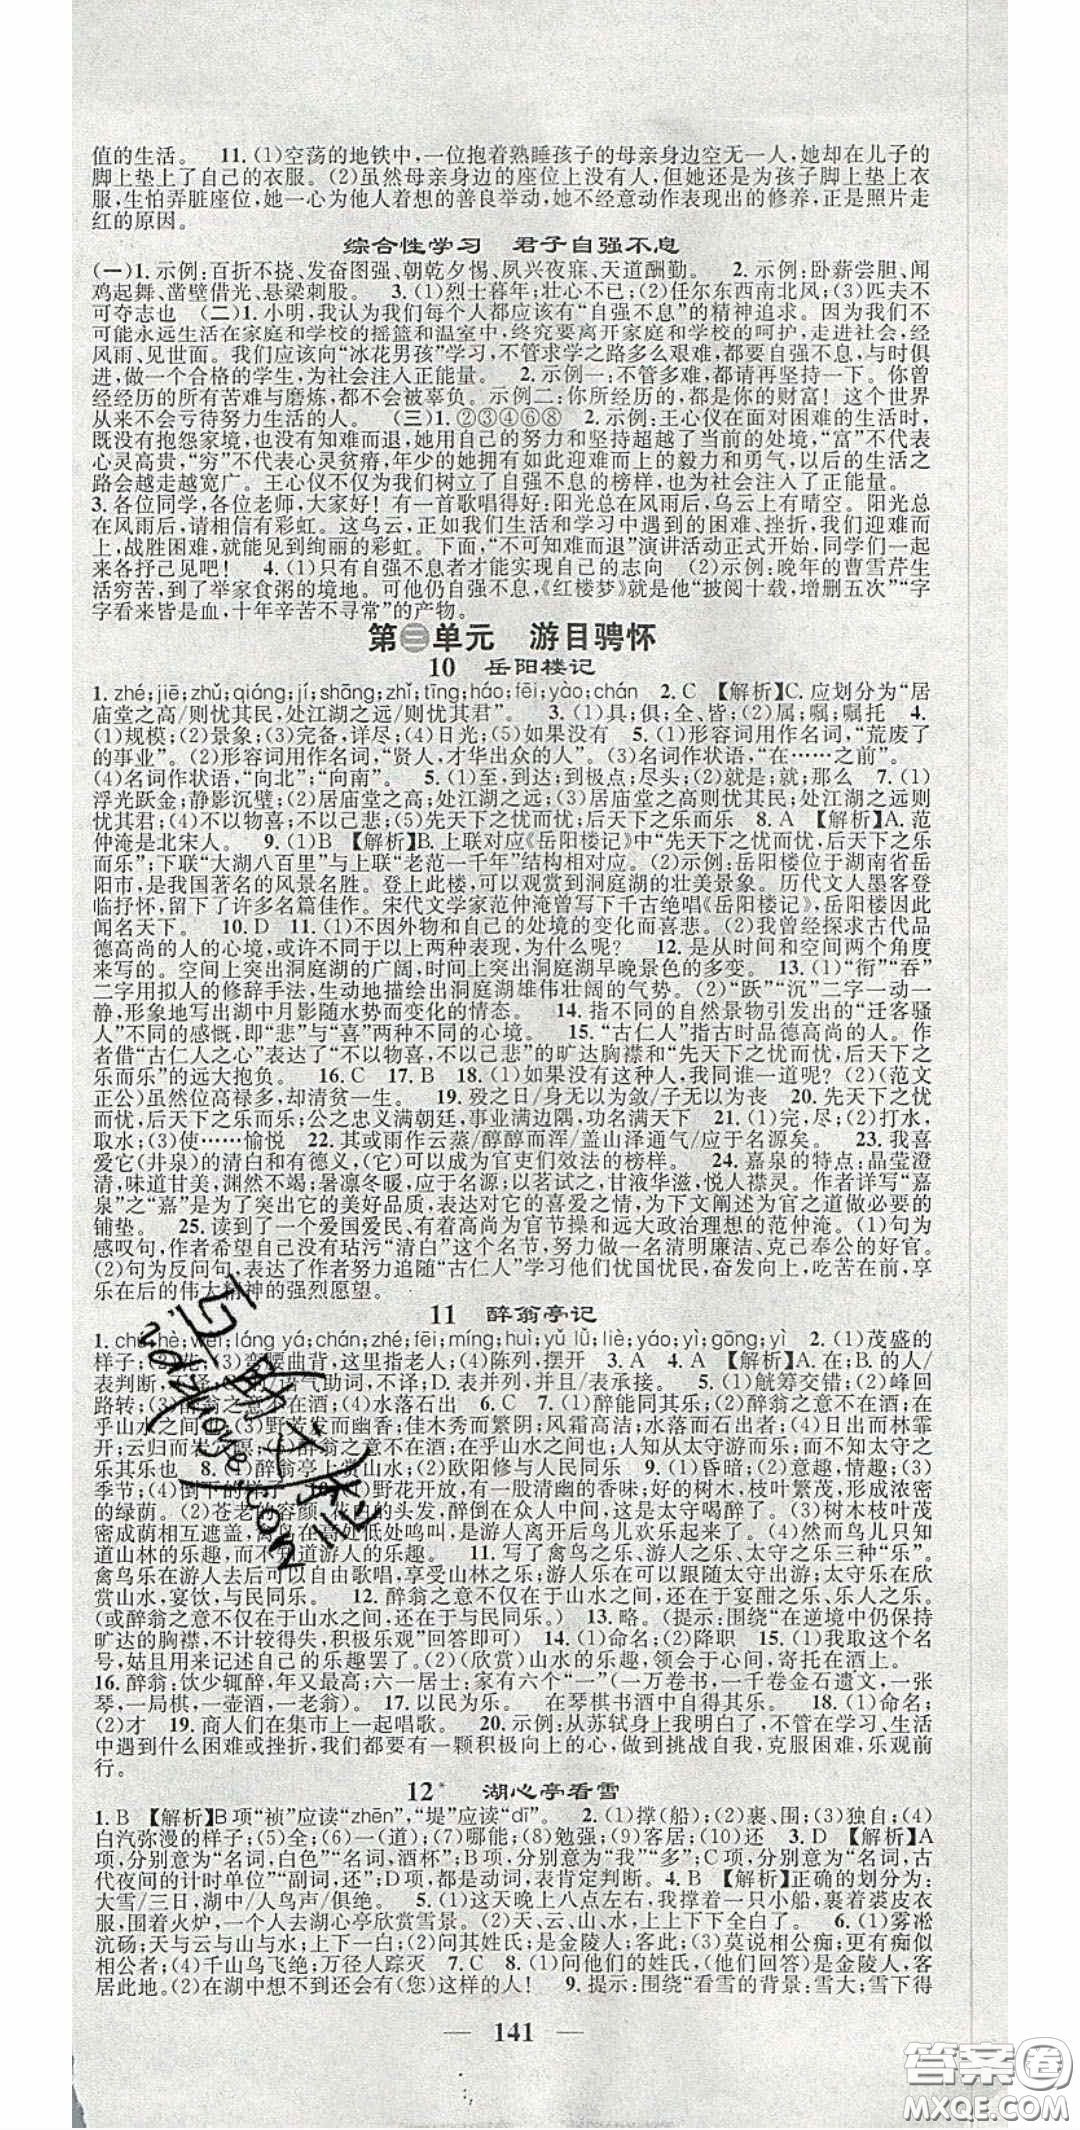 值的生活。 11. (1)空荡的地铁中,一位抱着熟睡孩子的母亲身边空无一人,她却在儿子的
脚上垫上了自己的衣服。(2)虽然母亲身边的座位上没有人,但她还是为孩子脚上垫上衣
服,生怕弄脏座位,她一心为他人着想的善良举动,她不经意动作表现出的修养,正是照片走
红的原因。
综合性学习 君子自强不息
(一)1. 示例:百折不挠、发奋图强、朝乾夕惕、夙兴夜寐、天道酬勤。 2. 示例:卧薪尝胆、闻
鸡起舞、凿壁借光、悬梁刺股。 3. (1)烈士暮年;壮心不已;(2)任尔东西南北风;(3)匹夫不
可夺志也 (二)1. 小明,我认为我们每个人都应该有“自强不息”的精神追求。因为我们不
可能永远生活在家庭和学校的摇篮和温室中,终究要离开家庭和学校的呵护,走进社会,经
风雨、见世面。我们应该向“冰花男孩”学习,不管求学之路多么艰难,都要自强不息,与时俱
进,做一个合格的学生,为社会注入正能量。 2. 示例一:不管多难,都请再坚持一下。你曾
经经历的所有苦难与磨炼,总有一天会被辜负。示例二:你所经历的,都是你的财富!这个世界
从来不会亏待努力生活的人。 (三)1. ②③④⑥⑧ 2. 示例:王心仪在面对困难的生活时,
既没有抱怨家境,也没有知难而退,她用自己的努力和坚持超越了当前的处境,“富”不代表
心灵高贵,“穷”不代表心灵贫瘠,年少的她拥有如此迎难而上的毅力和勇气,以后的生活之
路会越走越宽广。王心仪不仅为我们树立了自强不息的榜样,也为社会注入了正能量。
3. 各位同学,各位老师,大家好!有一首歌唱得好:阳光总在风雨后,乌云上有晴空。阳光总
在风雨后,请相信有彩虹。这乌云,正如我们生活和学习中遇到的困难、挫折,让我们迎难而
上,战胜困难,迎接我们的绚丽的彩虹。下面,“不可知难而退”演讲活动正式开始,同学们一起
来各抒己见吧! 4. (1)只有自强不息者才能实现自己的志向 (2)示例:晚年的曹雪芹生
活穷苦,到了举家食粥的境地。可他仍自强不息,《红楼梦》就是他“披阅十载,增删五次”“字
字看来皆是血,十年辛苦不寻常”的产物。
第三单元 游目骋怀
10 岳阳楼记
1. zhé;jiē;zhǔ;qiáng;jí;shāng;zhǐ;tīng;háo;fēi;yào;chán 2. C 【解析】C. 应划分为“居
庙堂之高/则忧其民,处江湖之远/则忧其君”。 3. (1)具;俱;全、皆;(2)属;嘱;嘱托 4.
(1)规模;(2)景象;(3)完备,详尽;(4)日光;(5)如果没有 5. (1)形容词用作名词,“荒废了
的事业”。(2)形容词用作名词,“贤人,才华出众的人”。(3)名词作状语,“在……之前”。
(4)名词作状语,“向北”;“向南”。 5. (1)至,到达;到极点;尽头;(2)就是;就;那么 7. (1)
浮光跃金;静影沉璧;(2)居庙堂之高;处江湖之远;(3)居庙堂之高则忧其民;处江湖之远则
忧其君;(4)不以物喜;不以己悲;(5)先天下之忧而忧;后天下之乐而乐 8. A 【解析】A. 范
仲淹是北宋人。 9. (1)B 【解析】B. 上联对应《岳阳楼记》中“先天下之忧而忧,后天下之乐
而乐”;下联“大湖八百里”与上联“老范一千年”结构相对应。(2)示例:岳阳楼位于湖南省岳
阳市,是我国著名的风景名胜。登上此楼,可以观赏到洞庭湖的壮美景象。历代文人墨客登
临抒怀,留下了许多名篇佳作。宋代文学家范仲淹曾写下千古绝唱《岳阳楼记》,岳阳楼因此
闻名天下。 10. D 11. (1)不因外物和自己的处境的变化而喜悲。(2)我曾经探求古代品
德高尚的人的心境,或许不同于以上两种表现,为什么呢? 12. 是从时间和空间两个角度
来写的。空间上突出洞庭湖的广阔,时间上突出洞庭湖早晚景色的多变。 13. (1)“衔”“吞”
二字用拟人的修辞手法,生动地描绘出洞庭湖雄伟壮阔的气势。(2)“跃”“沉”二字一动一
静,形象地写出湖中月影随水势而变化的情态。 14. 指不同的自然景物引发出的“迁客骚
人”不同的感慨,即“悲”与“喜”两种不同的心境。 15. “古仁人”指古时品德高尚的人。作
者借“古仁人之心”表达了“不以物喜,不以己悲”的旷达胸襟和“先天下之忧而忧,后天下之
乐而乐”的远大抱负。 16. C 17. B 18. (1)如果没有这种人,我同谁一道呢?(2)(范文
正公)虽然位高禄多,却清贫一生。 19. 殁之日/身无以为敛/子无以为丧 20. 先天下之忧
而忧,后天下之乐而乐;公之忠义满朝廷,事业满边隅,功名满天下 21. (1)完,尽;(2)打水,
取水;(3)使……愉悦 22. 其或雨作云蒸/醇醇而浑/盖山泽通气/应于名源矣。 23. 我喜
爱它(井泉)的清白和有德义,(它)可以成为官吏们效法的榜样。 24. 嘉泉的特点:晶莹澄
清,味道甘美,渊然不竭;暑凛冬暖,应于名源;以茗试之,甘液华滋,悦人襟灵。作者详写“嘉
泉”之“嘉”是为了突出它的美好品质,表达对它的喜爱之情,为下文阐述为官之道做必要的
铺垫。 25. 读到了一个爱国爱民、有着高尚为官节操和远大政治理想的范仲淹。(1)句为
感叹句,作者希望自己没有玷污“清白”这个名节,努力做一名清明廉洁、克己奉公的好官。
(2)句为反问句,表达了作者努力追随“古仁人”学习他们忧国忧民,奋发向上,享
乐在后的伟大精神的强烈愿望。
11 醉翁亭记
1. chú;hè;wèi;láng yá;chán;zhé;fēi;míng;huì;yǔ lǚ;liè;yáo;yì;gōng;yì 2. (1)茂盛的
样子;(2)先;(3)弯腰曲背,这里指老人;(4)陈列,摆开 3. A 4. A 【解析】A. 在;B. 的人/
表判断,不译;C. 的/语气助词,不译;D. 表并列,并且/表承接 5. (1)觥筹交错;(2)峰回
路转;(3)醉翁之意不在酒;(4)水落石出 6. C 7. (1)醉能同其乐;(2)醉翁之意不在酒;在
乎山水之间也;(3)野芳发而幽香;佳木秀而繁阴;风霜高洁;水落而石出者;(4)日出而林霏
开;云归而岩穴暝;(5)醉翁之意不在酒;在乎山水之间也;人知从太守游而乐;而不知太守之
乐其乐也 8. (1)醉翁亭上赏山水;(2)欧阳修与人民同乐 9. (1)昏暗;(2)意趣,情趣;(3)
季节;(4)倒下的样子 10. (1)野花开放,有一股清幽的香味;好的树木,枝叶繁茂,形成浓密
的绿荫。(2)苍老的容颜,花白的头发,醉倒在众人中间,这是太守喝醉了。(3)树木枝叶茂
密成荫相互遮盖,禽鸟在高处低处鸣叫,是游人离开后鸟儿欢乐起来了。(4)然而鸟儿只知
道山林的乐趣,而不知道游人的乐趣。 11. 写了禽鸟之乐、游人之乐、太守之乐三种“乐”。
禽鸟乐在游人去后可以自由歌唱,享受山林;游人乐在可以跟随太守出游;太守乐在欣
赏山水,宴饮,与民同乐。 12. 醉翁之意不仅在于山水之间,还在于宴酣之乐、乐人之乐。
(或醉翁之意不仅在于山水之间,还在于与民同乐。) 13. 略。(提示:围绕“在逆境中仍保持
旷达的胸襟,不计较得失,积极乐观”回答即可) 14. (1)命名;(2)降职 15. (1)我取这个名
号,姑且用来记自己的乐趣罢了。(2)(欣赏)山水的乐趣,领会于心间,寄托在酒上。
16. 醉翁:饮少辄醉,年又最高;六一居士:家有六个“一”(一万卷书,一千卷金石遗文,一张
琴,一局棋,一壶酒,一老翁。 17. 以民为乐。 在琴棋书酒中自得其乐。 18. (1)命名;
(2)才 19. 商人们在集市上一起唱歌。 20. 示例:从苏轼身上我明白了,不管在学习、生活
中遇到什么困难或挫折,我们都要有一颗积极向上的心,做到挑战自我,克服困难,乐观前
行。
12* 湖心亭看雪
1. B 【解析】B项“祯”应读“zhēn”,“堤”应读“dī”。 2. (1)撑(船);(2)裹、围;(3)独自;(4)
白汽弥漫的样子;(5)全;(6)一(道);(7)哪能;(8)勉强;(9)客居;(10)还 3. D 【解析】A
项,分别意为“名词,白色”“名词,酒杯”;B项,分别意为“我”“多”;C项,分别意为“名词,古
代夜间的计时单位”“副词,还”;D项,都是动词,表肯定判断。 4. B 【解析】正确的划分为:
大雪/三日,湖中/人鸟声/俱绝。 5. (1)这天晚上八点左右,我撑着一只小船,裹着裘皮衣
服,围着火炉,一个人去湖心亭欣赏雪景。(2)天、云、山、水,上上下下全白了。 6. (1)雾凇
沆砀;天与云与山与水;上下一白;(2)问其姓氏;是金陵人;客此;(3)莫说相公痴;更有痴似
相公者;(4)千山鸟飞绝;万径人踪灭 7. C 8. (1)问他们的姓氏,(他们回答)是金陵人,客
居此地。(2)在湖中想不到还会有(您)这样的人! 9. 提示:围绕“看雪的背景:雪大;雪下得
— 141 —
答案圈
MXQE.COM